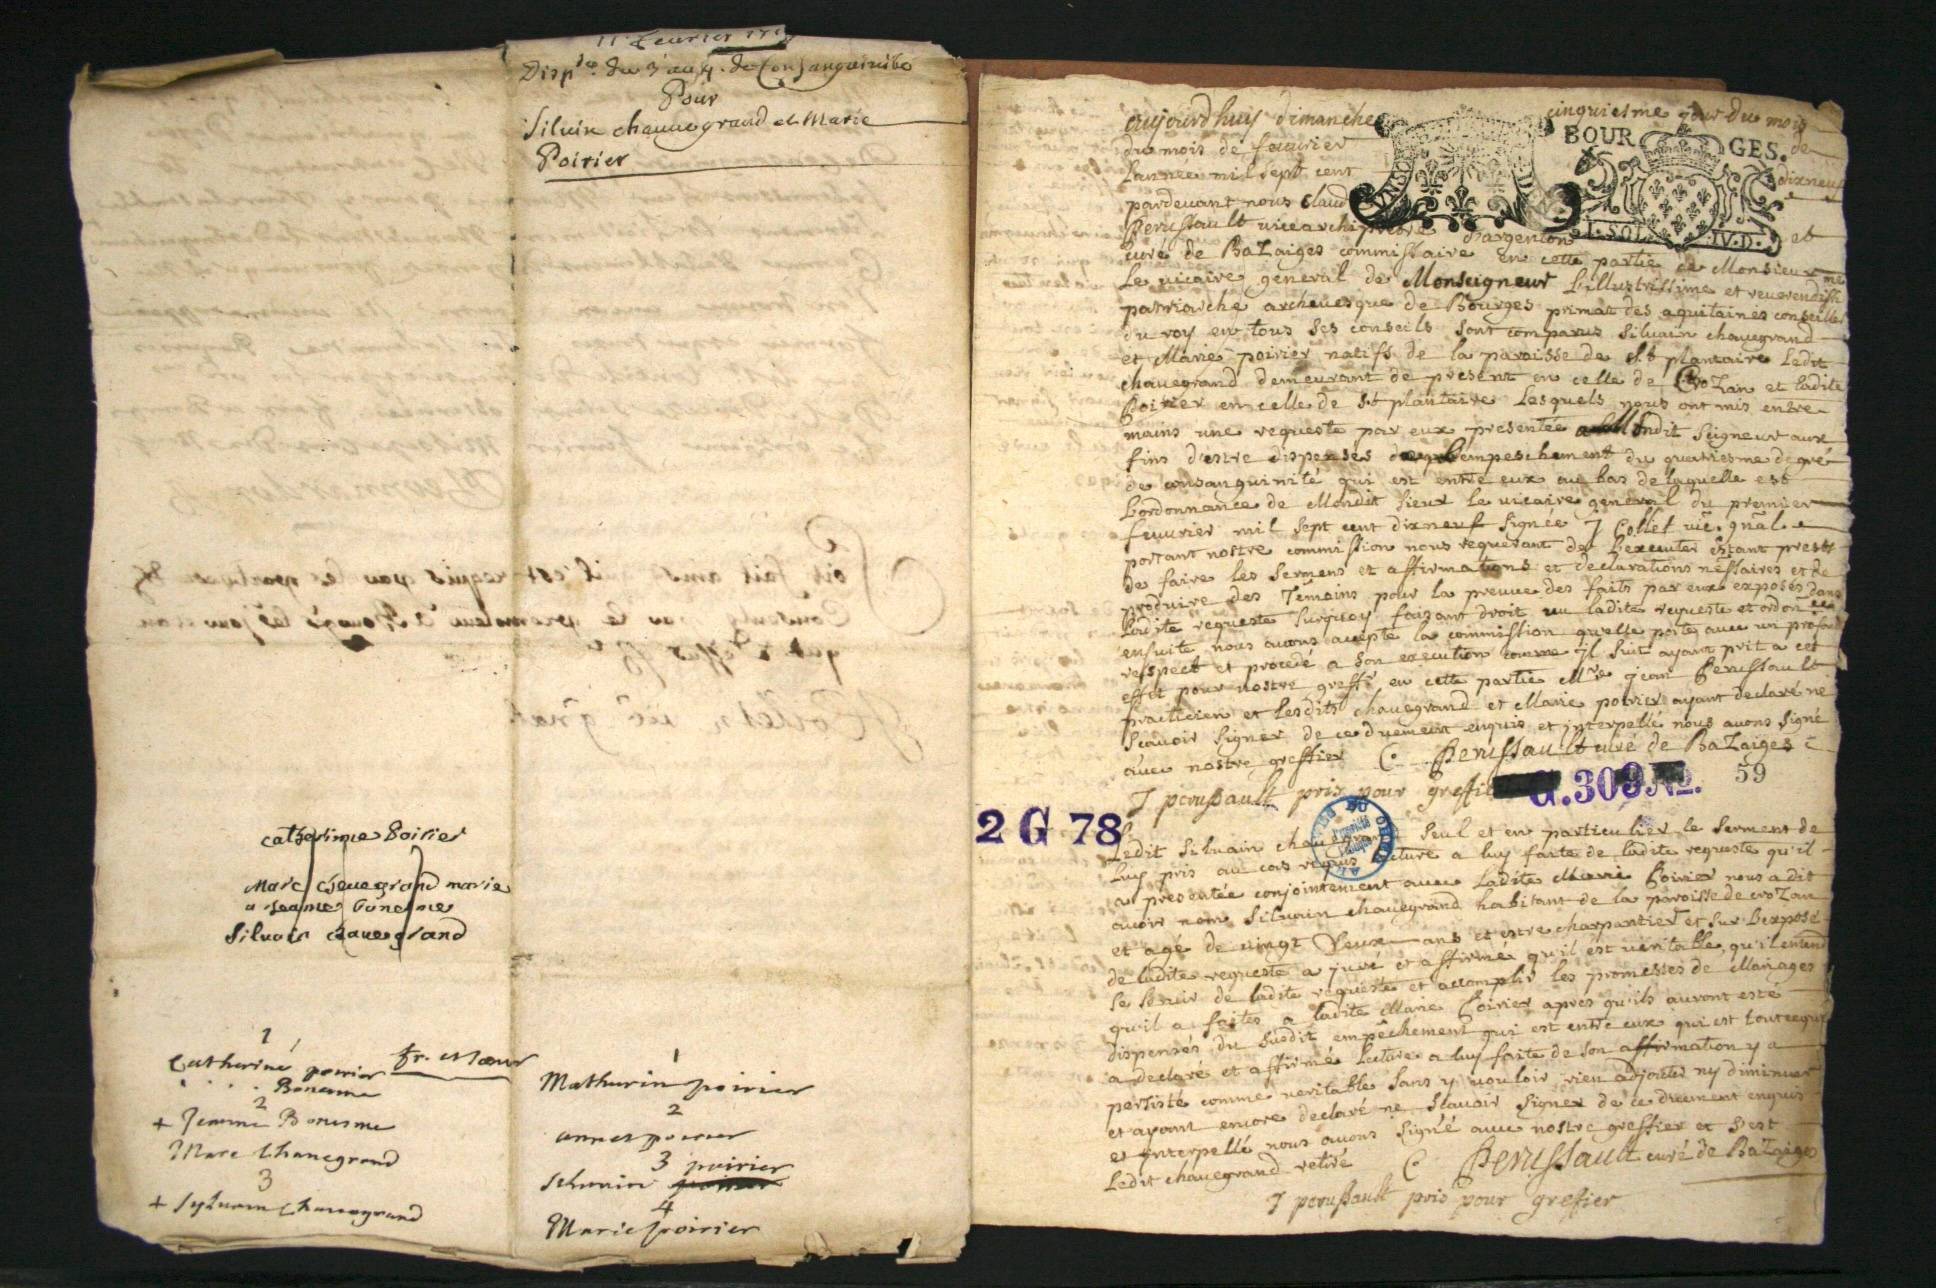 11 feurier 1719
Disp^ce du 3 au 4. de Consanguinité
Pour
Siluin chauuegrand et Marie
Poirier
catherinne Poirier
Marc chauegrand marie
Jeanne Bonesme
Siluain chauegrand
1
Catherine poirier fr. et sœur
Bonesme
2
+ Jeanne Bonesme
Marc Chauegrand
3
+ Syluain chauuegrand
1
Mathurin poirier
2
annet poirier
3 poirier
Siluain
4
Marie poirier
aujourdhuy dimanche cinquiesme jour du mois
du mois de feuurier de
Lannée mil sept cent dixneuf
pardeuant nous Claude
Perussault vicearchipretre d'argenton et
curé de BaZaiges commissaire en cette partie de Monsieur
Le uicaire general de Monseigneur L'illustrissime et reuerendissime
patriarche archeuesque de Bourges primat des aquitaines conseiller
du roy en tous ses conseils sont comparus Siluain chauegrand
et Marie poirier natifs de la paroisse de St plantaire Ledit
chauegrand demeurant de present en celle de CroZan et ladite
Poirier en celle de St plantaire Lesquels nous ont mis entre
mains une requeste par eux presentée a Mondit Seigneur aux
fins d'estre dispensés de Lempeschement du quatriesme degré
de consanguinité qui est entre eux au bas de laquelle est
Lordonnance de Mondit Sieur le uicaire general du premier
feuurier mil sept cent dixneuf Signée J Collet vic. gnal.
portant nostre commission nous requerant de Lexecuter estant prests
de faire les Sermens et affirmations et declarations nessaires et de
produire des Temoins pour la preuue des faits par eux exposés dans
Ladite requeste Surquoy faisant droit uu ladite requeste et ordonce
ensuite nous auons accepté la commission quelle porte auec un profond
respect et procedé a Son execution comme il Suit ayant prit a cet
effet pour nostre greffr en cette partie Mre jean Perussault
practicien et Lesdits chauegrand et Marie poirier ayant declaré ne
Scauoir Signer de ce duement enquis et interpellé nous auons Signé
auec nostre greffier C. Perussault curé de BaZaiges
J perussault pris pour grefier
Ledit Siluain chauegrand Seul et en particulier le Serment de
Luy pris au cas requis lecture a luy faite de ladite requeste qu'il
a presentée conjointement auec Ladite Marie Poirier nous a dit
auoir nom Siluain chauegrand habitant de la paroisse de croZan
et agé de uingt deux ans et estre charpantier et Sur Lexposé
de ladite requeste a juré et affirmé qu'il est ueritable, qu'il entend
Se Seruir de ladite requeste et accomplir les promesses de Mariages
qu'il a faites a ladite Marie Poirier apres qu'ils auront esté
dispensés du Susdit empêchement qui est entre eux qui est tout ce quil
a declaré et affirmé Lecture a luy faite de Son affirmation y a
persisté comme ueritable Sans y uouloir rien adjouter ny diminuer
et ayant encore declaré ne Scauoir Signer de ce duement enquis
et interpellé nous auons Signé auec nostre greffier et S'est
Ledit chauegrand retiré C. Perussault curé de BaZaiges
J perussault pris pour grefier
BOURGES.
VINGT
1. SOL IV. D.
G.309 No. 59
2 G 78